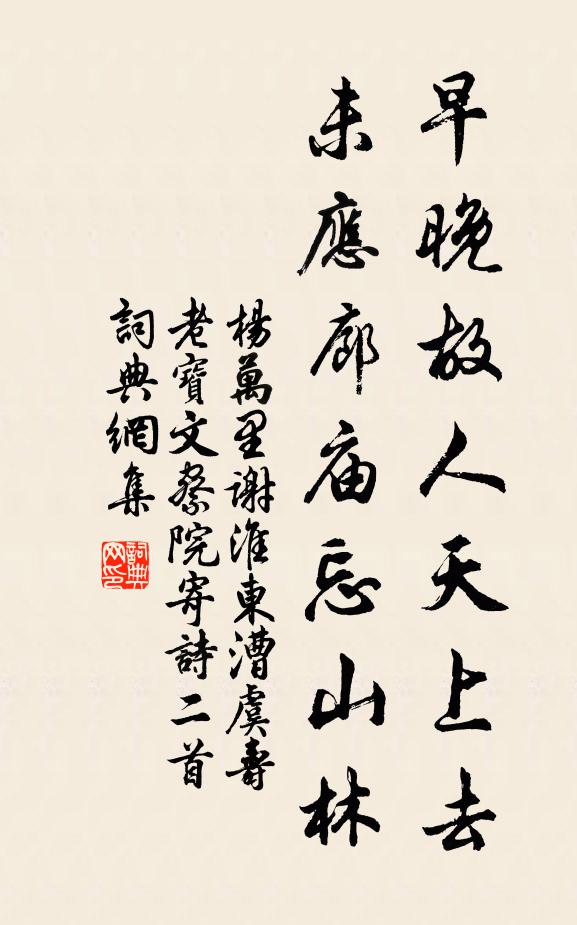 早晚故人天上去
未應廊庙忘山林
楊萬里謝淮東漕虞壽
老寶文察院寄詩二首
詞典網集
詞典网印